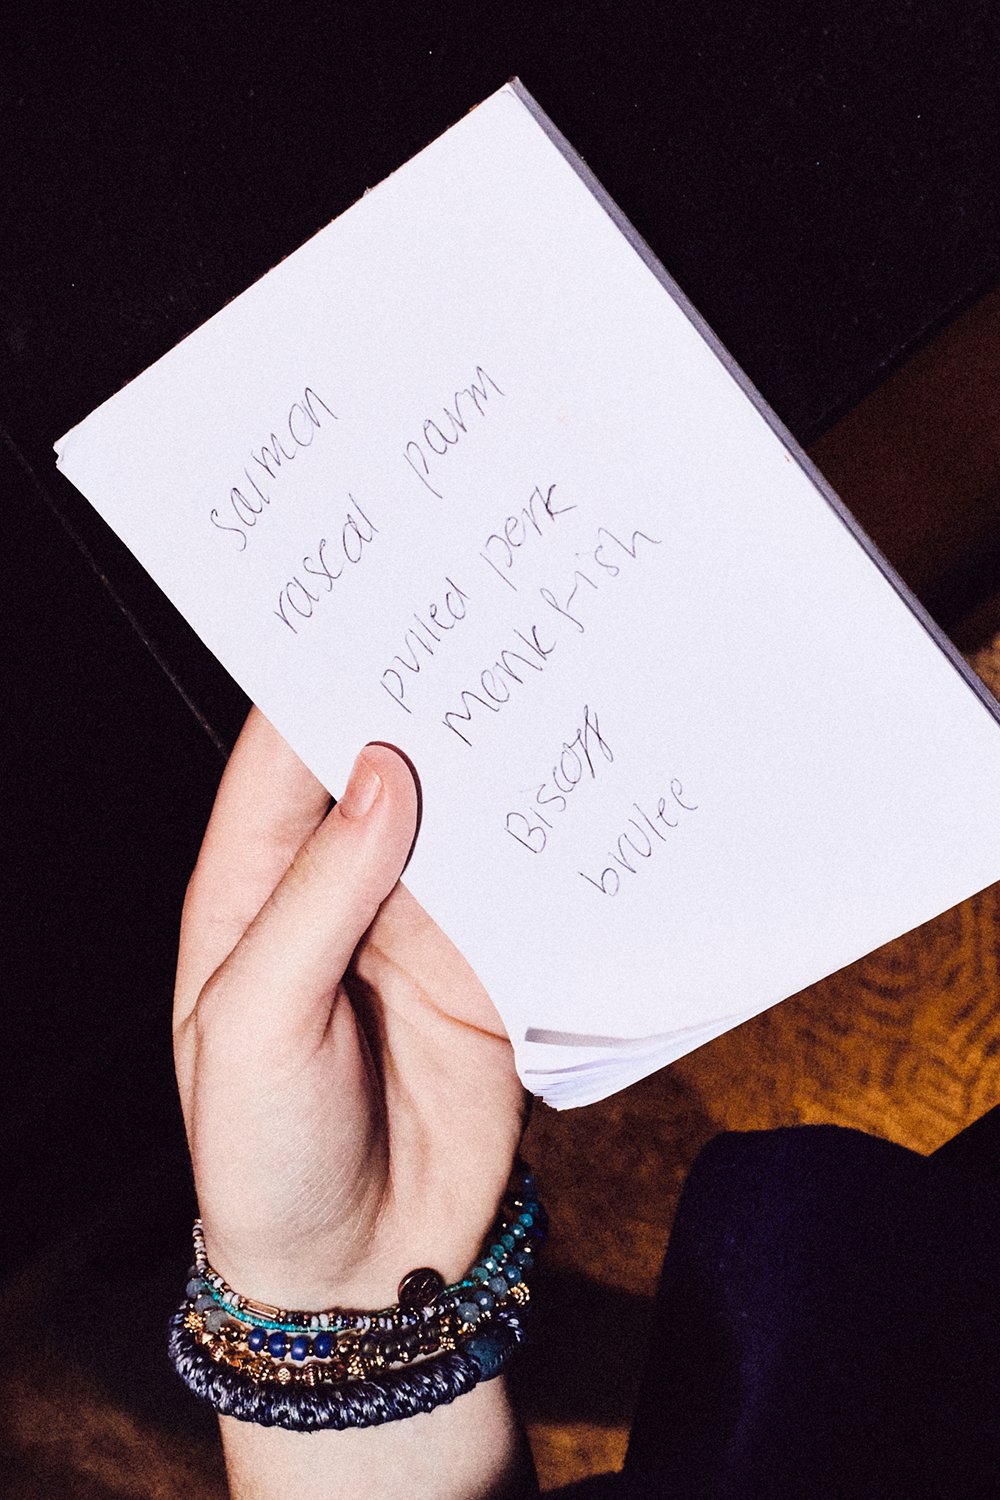 salmon
rascal parm
pulled pork
monkfish
Biscoff
brulee